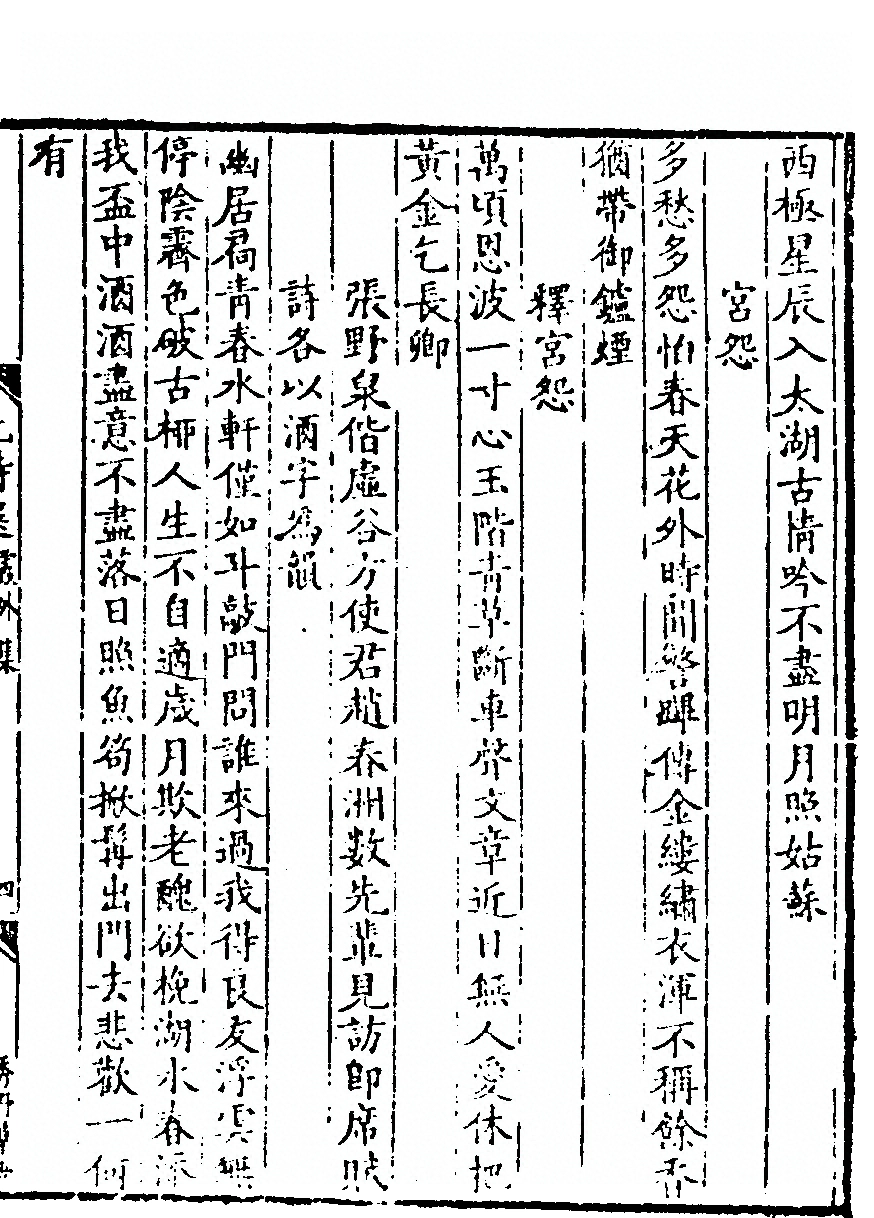 西極星辰入太湖古情吟不盡明月照姑蘇
宮怨
多愁多怨怕春天花外時聞警蹕傳金縷繡衣渾不稱餘香
猶帶御鑪煙
釋宮怨
萬頃恩波一寸心玉階青草斷車聲文章近日無人愛休把
黃金乞長卿
張野泉偕虛谷方使君趙春洲數先輩見訪即席賦
詩各以酒字為韻
幽居僃青春水軒僅如斗敲門問誰來過我得良友浮雲無
停陰霽色破古柳人生不自適歲月欺老醜欲挽湖水春添
我盃中酒酒盡意不盡落日照魚笱掀髯出門去悲歡一何
有
元詩選癸外集
四
秀野草堂